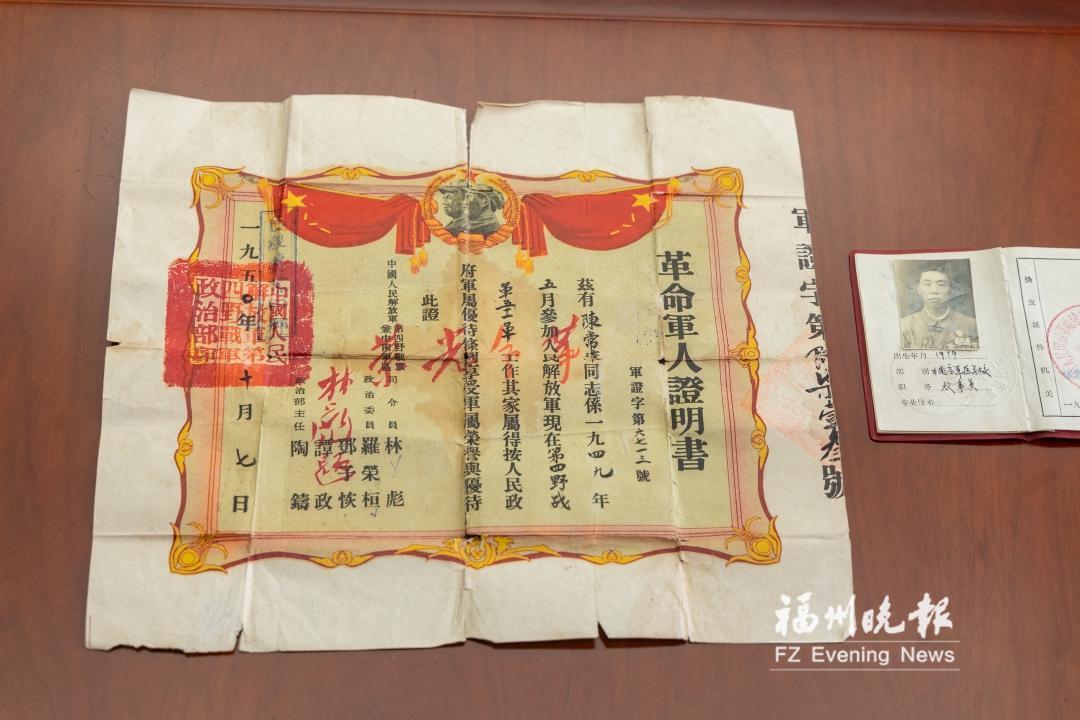 革命軍人證明書
軍證字第六七一三號
茲有陳常 同志係一九四九年
五月參加人民解放軍現在第四野战
軍 工作其家屬得按人民政
府軍屬優待條例享受軍屬榮譽與優待
此證
中國人民解放軍第四野戰軍
兼中南軍區
司令員 林彪
政治委員 羅榮桓
鄧子恢
譚政
政治部主任 陶鑄
一九五〇年 十月七日
中國人民
解放軍第
四野戰軍
政治部印
革命光荣
軍證字第
號
出生年月 1919
部别
职务
专业技术
换发证件机关
福州晚报
FZ Evening News